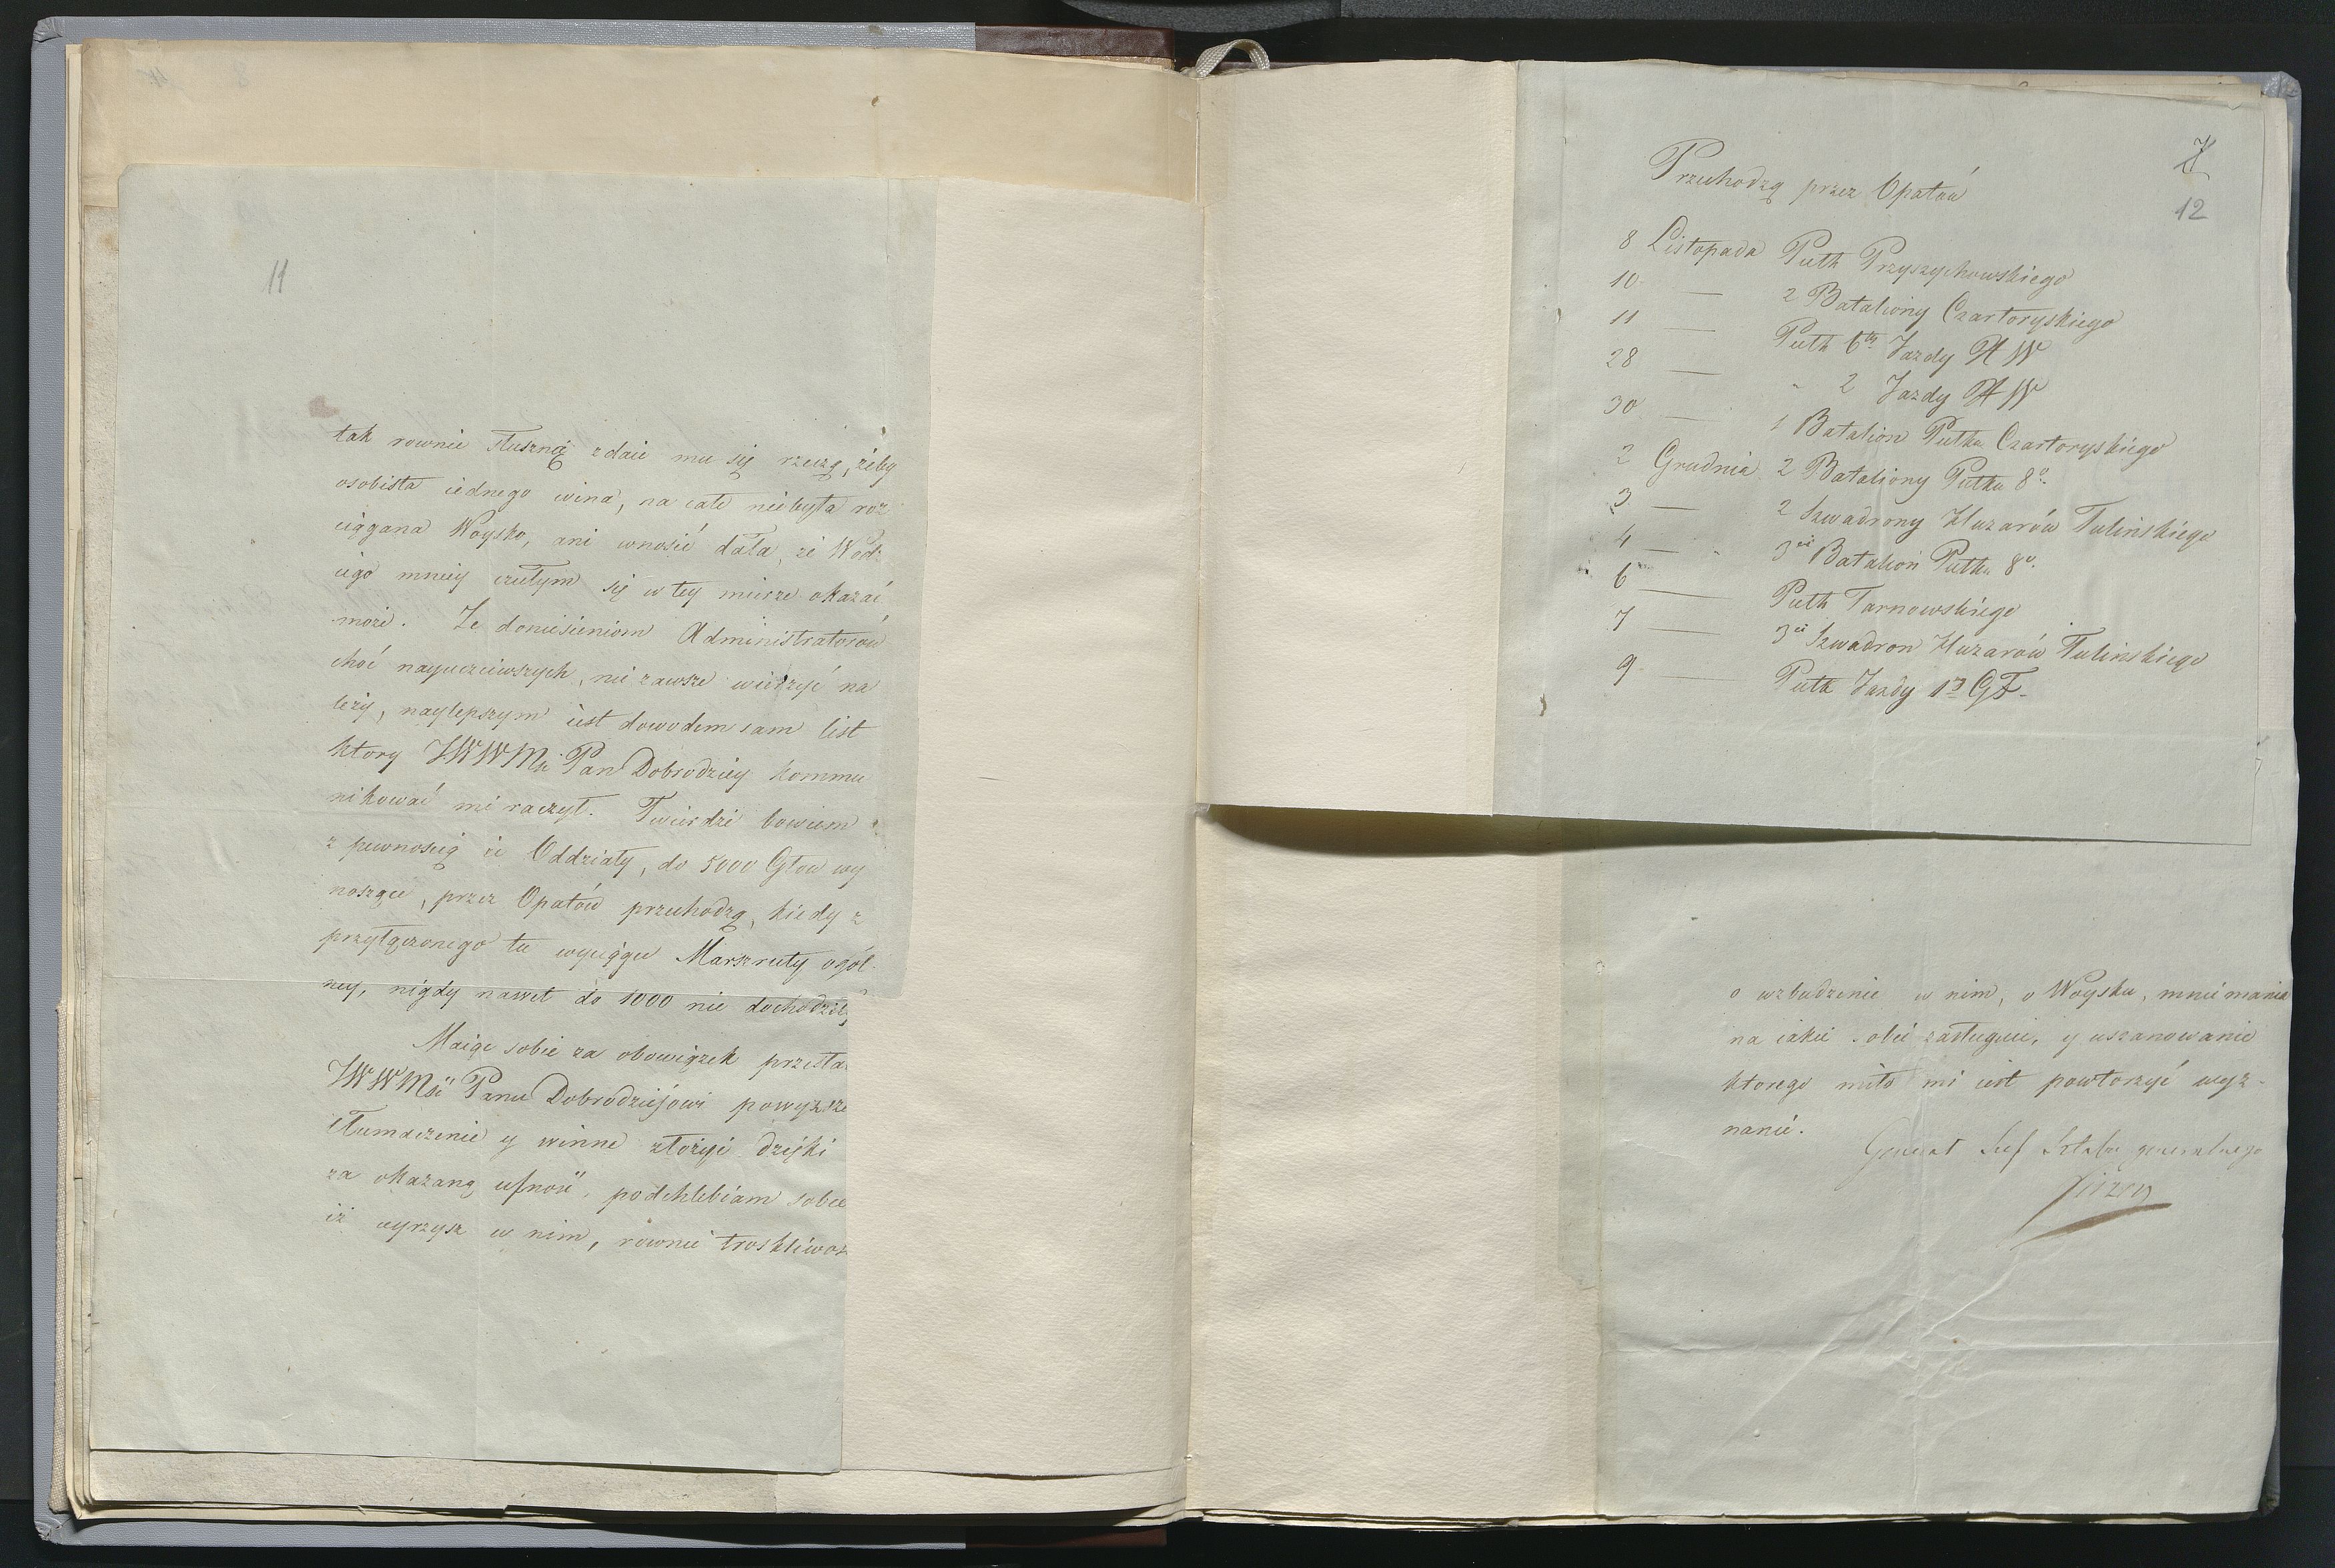 11
tak rownie słuszną zdaie mu się rzeczą, żeby
osobista iednego wina, na całe niebyła roz
ciągana Woysko, ani wnosić dała, że Wod:
iego mniey czułym się w tey mierze okazać
może. Ze doniesieniom Administratorow
choć nayuczciwszych, nie zawsze wierzyć na
leży, naylepszym iest dowodem sam list
ktory JWWMsc Pan Dobrodziey kommu
nikować mi raczył. Twierdzi bowiem
z pewnoscią że Oddziały, do 5000 Głow wy
noszące, przez Opatów przechodzą, kiedy z
przyłączonego tu wyciągu Marszruty ogól
ney, nigdy nawet do 1000 nie dochodziły
Maiąc sobie za obowiązek przesłać
JWWMsci Panu Dobrodziejowi powyższe
tłumaczenie y winne złożyć dzięki
za okazaną ufność, podchlebiam sobie
iż uyrzysz w nim, rownie troskliwos
7
12
Przechodzą przez Opatów
8 Listopada Pułk Przyszychowskiego
10 — 2 Bataliony Czartoryskiego
11 — Pułk 6ty Jazdy XW
28 — " 2 Jazdy XW
30 — 1 Batalion Pułku Czartoryskiego
2 Grudnia 2 Bataliony Pułku 8o.
3 — 2 Szwadrony Huzarów Tulińskiego
4 — 3ci Batalion Pułku 8o.
6 — Pułk Tarnowskiego
7 — 3ci Szwadron Huzarów Tulińskiego
9 — Pułk Jazdy 1y GF.
o wzbudzenie w nim, o Woysku, mniemania
na iakie sobie zasługuie, y uszanowanie
ktorego miło mi iest powtorzyć wyz-
nanie.
Generał Szef Sztabu generalnego